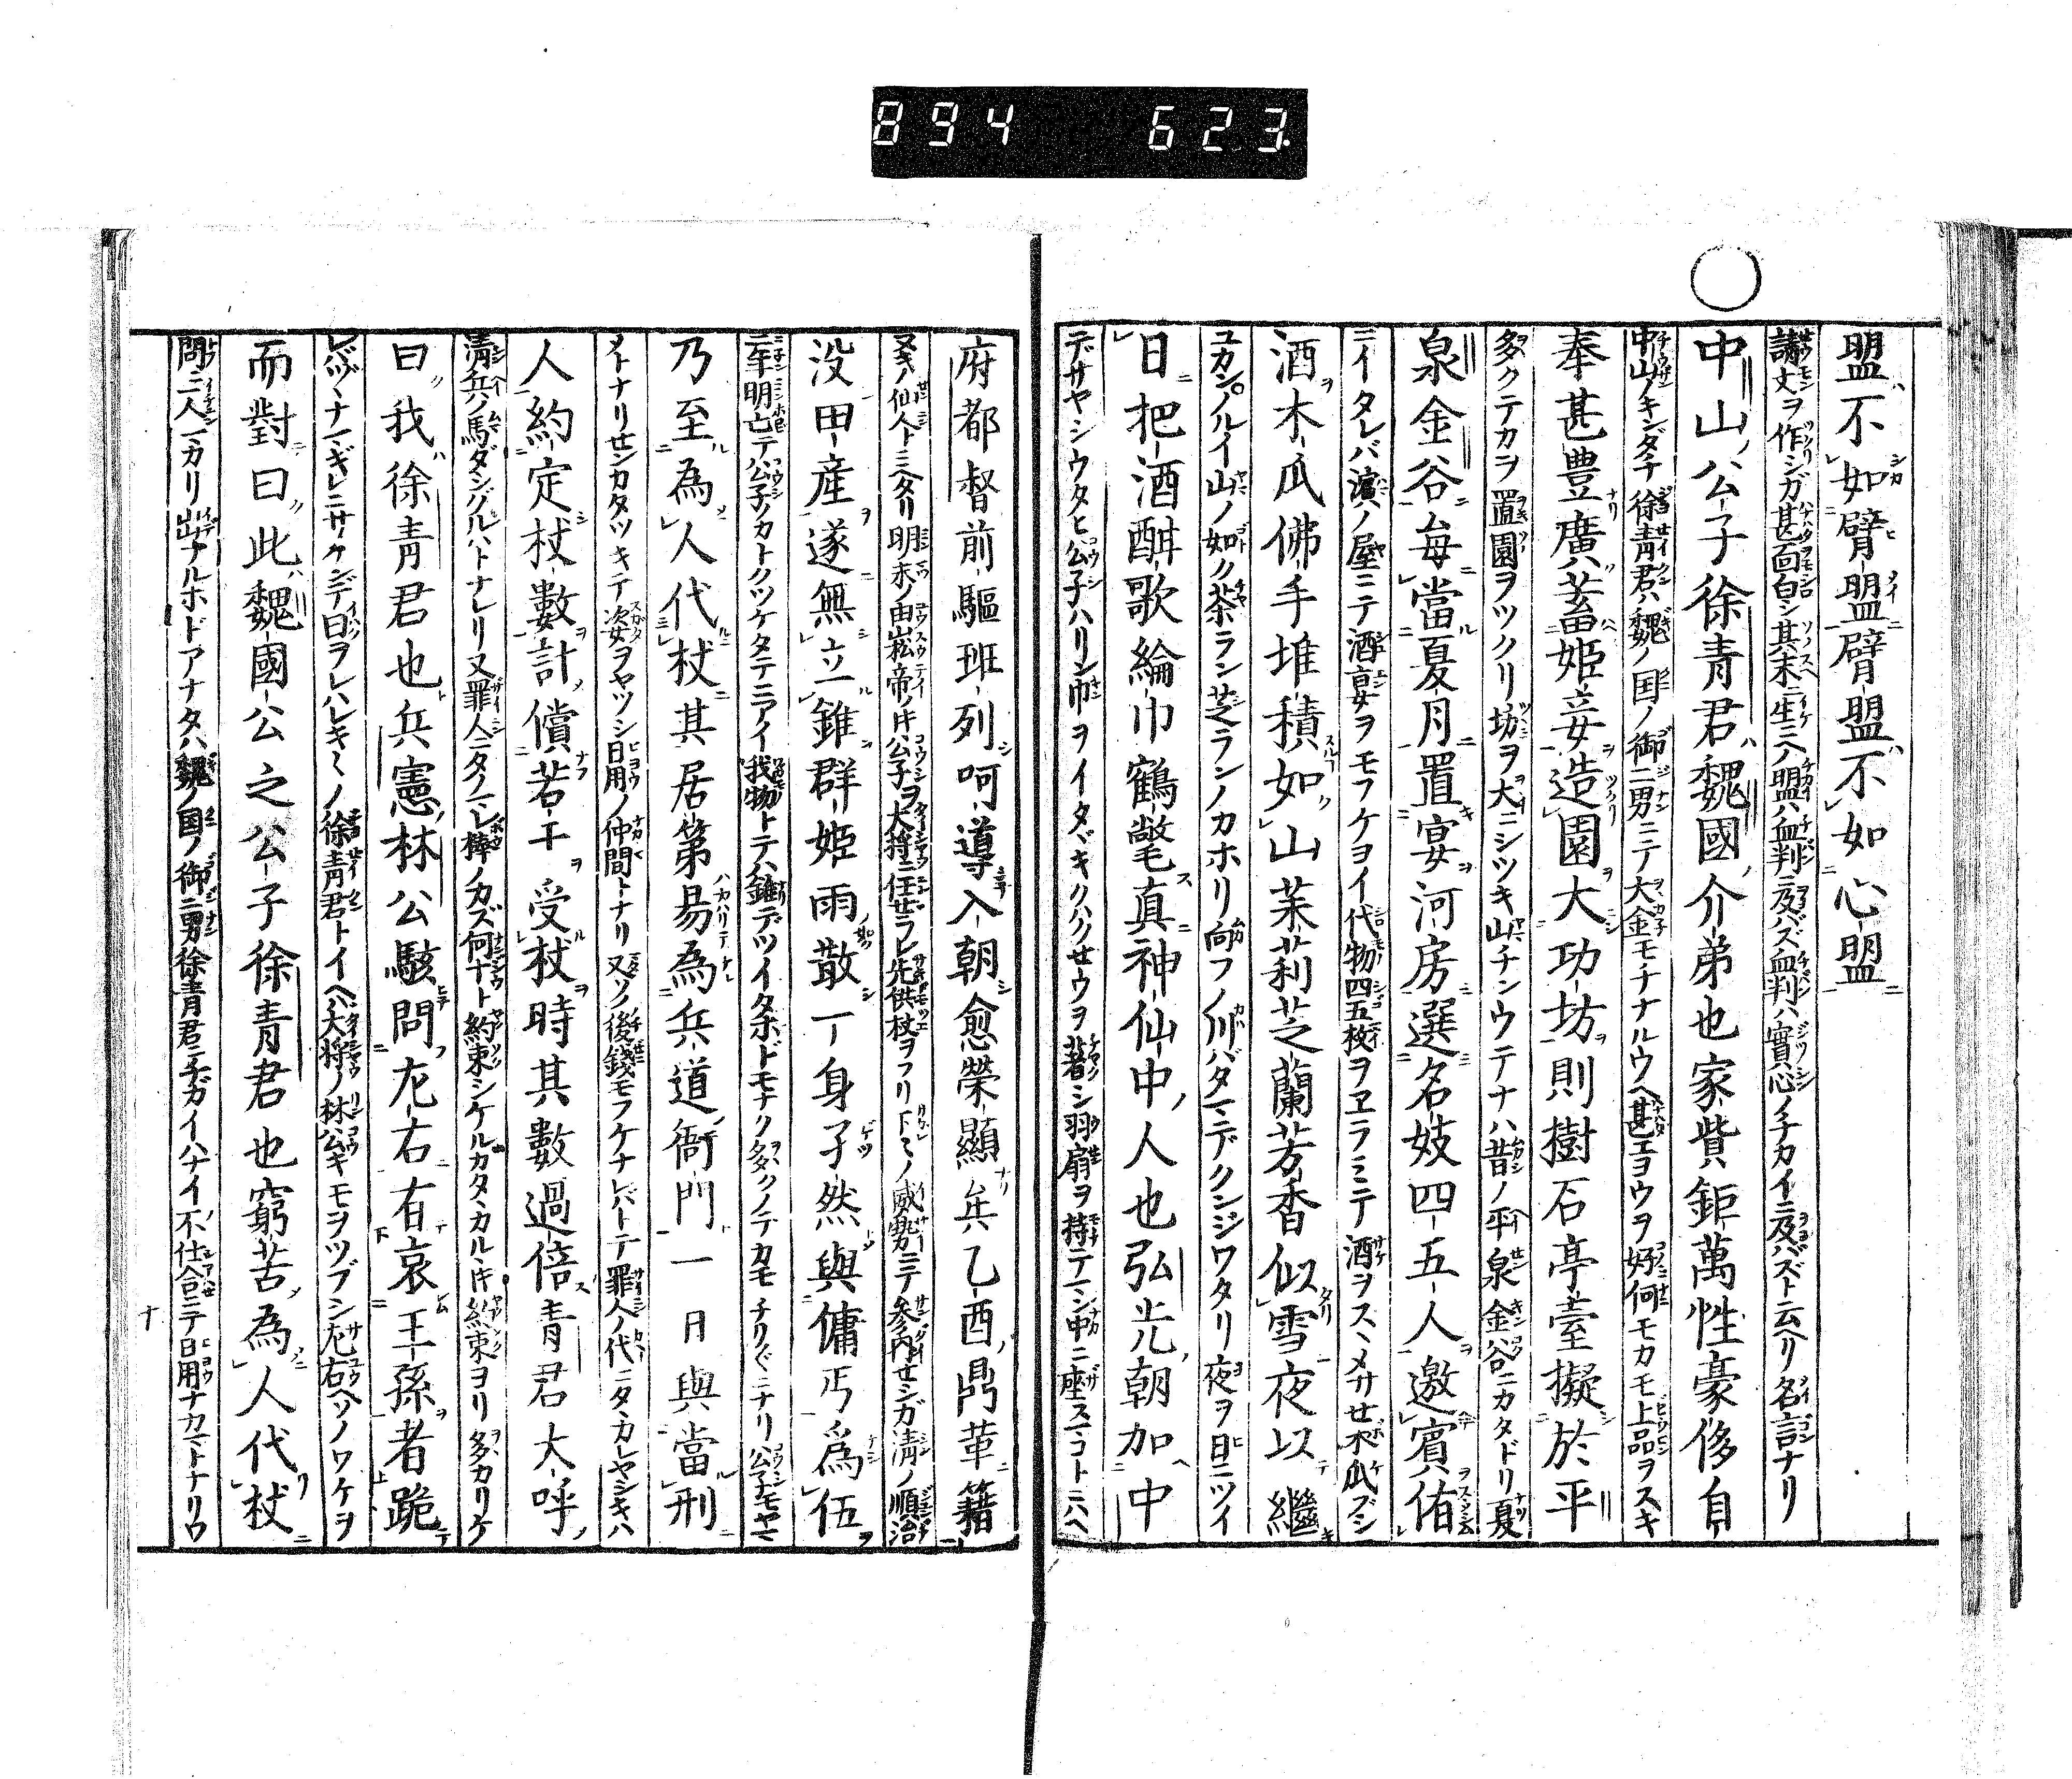 894 623
盟不如臂盟臂盟不如心盟
謝文ヲ作シガ甚面白シ其末ニ生ニハ盟ハ血判ニ及バズ血判ハ實心ノチカイニ及バズト云ヘリ名言ナリ
中山公子徐青君魏國介弟也家貲鉅萬性豪侈自
中山ノキンダチ徐青君ハ魏ノ国ノ御二男ニテ大金モチナルウヘ甚エヨウヲ好何モカモ上品ヲスキ
奉甚豊廣蓄姫妾造園大功坊則樹石亭臺擬於平
多クテカヲ置園ヲツクリ坊ヲ大ニシツキ山チンウテナハ昔ノ平泉金谷ニカタドリ夏
泉金谷毎當夏月置宴河房選名妓四五人邀賓侑
ニイタレバ濵ノ屋ニテ酒宴ヲモフケヨイ代物四五枚ヲヱラミテ酒ヲスヽメサセ木瓜ブシ
酒木瓜佛手堆積如山茉莉芝蘭芳香似雪夜以繼
ユカンノルイ山ノ如ク茶ラン芝ランノカホリ向フノ川バタマデクンジワタリ夜ヲ日ニツイ
日把酒酣歌綸巾鶴氅真神仙中人也弘光朝加中
デサヤシウタヒ公子ハリン巾ヲイタヾキクハクセウヲ著シ羽扇ヲ持テマン中ニ座スコトニハヘ
府都督前驅班列呵導入朝愈榮顯乒乙酉鼎革籍
ヌキノ仙人トミヘタリ明末ノ由崧帝ノ時公子ヲ大将ニ任セラレ先供杖ヲフリ下ニ〳〵ノ威勢ニテ参内セシガ清ノ順治
没田産遂無立錐群姫雨散一身孑然與傭丐爲伍
二年明亡テ公子ノカトクツケタテニアイ我物トテハ錐デツイタホドモナク多クノテカモチリ〴〵ニナリ公子モヤマ
乃至為人代杖其居第易為兵道衙門一日與當刑
メトナリセンカタツキテ姿ヲヤツシ日用ノ仲間トナリ又ソノ後錢モフケナレバトテ罪人ノ代ニタヽカレヤシキハ
人約定杖數計償若干受杖時其數過倍青君大呼
清兵ノ馬ダシグルハトナレリ又罪人ニタノマレ棒ノカズ何十ト約束シケルガタヽカルヽ時約束ヨリ多カリケ
曰我徐青君也兵憲林公駭問左右有哀王孫者跪
レバツヽナマギレニサケンデ曰ヲレハレキ〳〵ノ徐青君トイヘバ大将ノ林公キモヲツブシ左右ヘソノワケヲ
而對曰此魏國公之公子徐青君也窮苦為人代杖
問ニ一人マカリ出ナルホドアナタハ魏ノ国ノ御二男徐青君ニチガイハナイ不仕合ニテ日用ナカマトナリウ
ナ